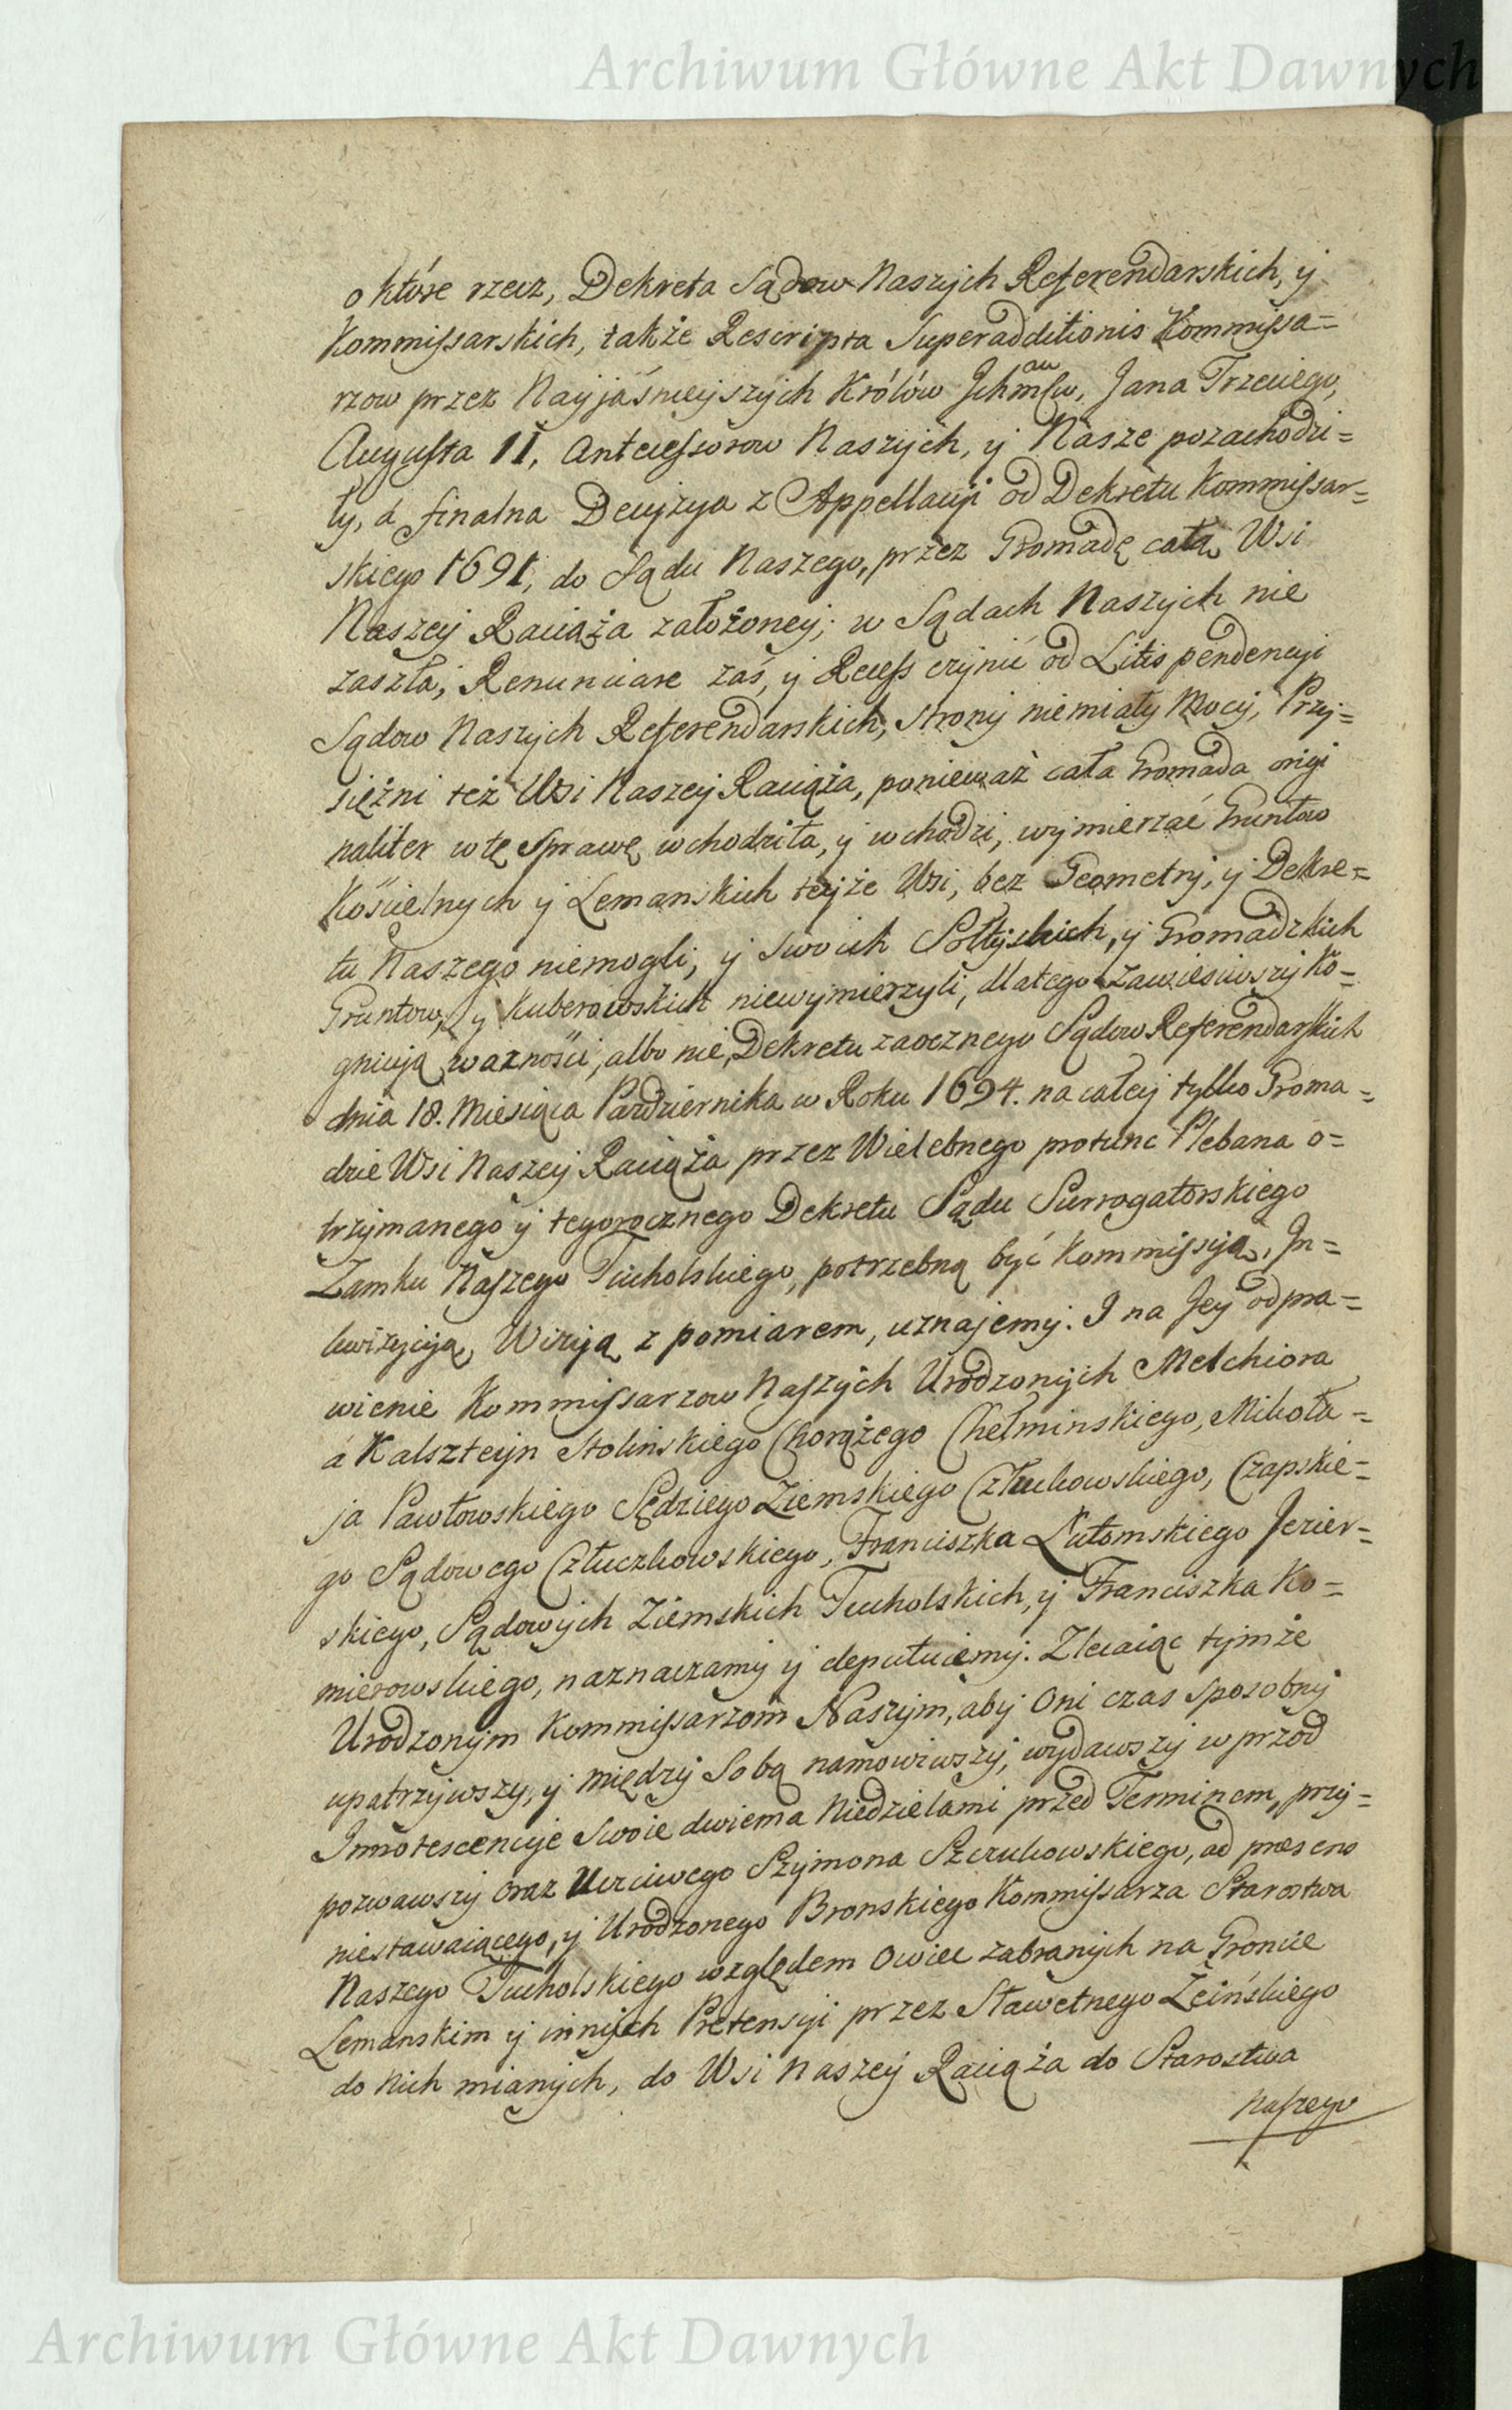 Archiwum Główne Akt Dawnych
o które rzecz, Dekreta Sądow Naszych Referendarskich, y
Kommissarskich, także Rescripta Superadditionis Kommissa=
rzow przez Nayjaśnieyszych Królów Jchmłw, Jana Trzeciego,
Augusta II, Antecessorow Naszych, y Nasze pozachodzi=
ły, á finalna Decyzya z Appellacyi od Dekretu Kommissar=
skiego 1691, do Sądu Naszego, przez Gromadę całą Wsi
Naszey Raciąża założoney; w Sądach Naszych nie
zaszła; Renunciare zaś, y Recess czynić od Litis pendencyi
Sądow Naszych Referendarskich, strony niemiały Mocy, Przy=
siężni też Wsi Naszey Raciąża, ponieważ cała Gromada origi
naliter w tę Sprawę wchodziła, y wchodzi, wymierzać Gruntow
Kościelnych y Lemanskich teyże Wsi, bez Geometry, y Dekre=
tu Naszego niemogli, y swoich Sołtyskich, y Gromadzkich
Gruntow, y Kuberowskich niewymierzyli, dlatego zawiesiwszy Ko=
gnicyą ważności, albo nie, Dekretu zaocznego Sądow Referendarskich
dnia 18. Miesiąca Października w Roku 1694. na całey tylko Groma=
dzie Wsi Naszey Raciąża przez Wielebnego protunc Plebana o=
trzymanego y tegorocznego Dekretu Sądu Surrogatorskiego
Zamku Naszego Tucholskiego, potrzebną być Kommissyą, In=
kwizycyą, Wizyą z pomiarem, uznajemy. I na Jey odpra=
wienie Kommissarzow Naszych Urodzonych Melchiora
á Kalszteyn Stolińskiego Chorążego Chełminskiego, Mikoła=
ja Pawłowskiego Sędziego Ziemskiego Człuchowskiego, Czapskie=
go Sądowego Człuchowskiego, Franciszka Lutomskiego Jezier=
skiego, Sądowych Ziemskich Tucholskich, y Franciszka Ko=
mierowskiego, naznaczamy y deputuiemy. Zlecaiąc tymże
Urodzonym Kommissarzom Naszym, aby Oni czas sposobny
upatrzywszy, y między Sobą namowiwszy, wydawszy wprzod
Innotescencye Swoie dwiema Niedzielami przed Terminem, przy=
pozwawszy oraz Uczciwego Szymona Szczukowskiego, ad præsens
niestawaiącego, y Urodzonego Bronskiego Kommissarza Starostwa
Naszego Tucholskiego względem Owiec zabranych na Groncie
Lemanskim y innych Pretensyi przez Sławetnego Żeińskiego
do Nich mianych, do Wsi Naszey Raciąża do Starostwa
Naszego
Archiwum Główne Akt Dawnych